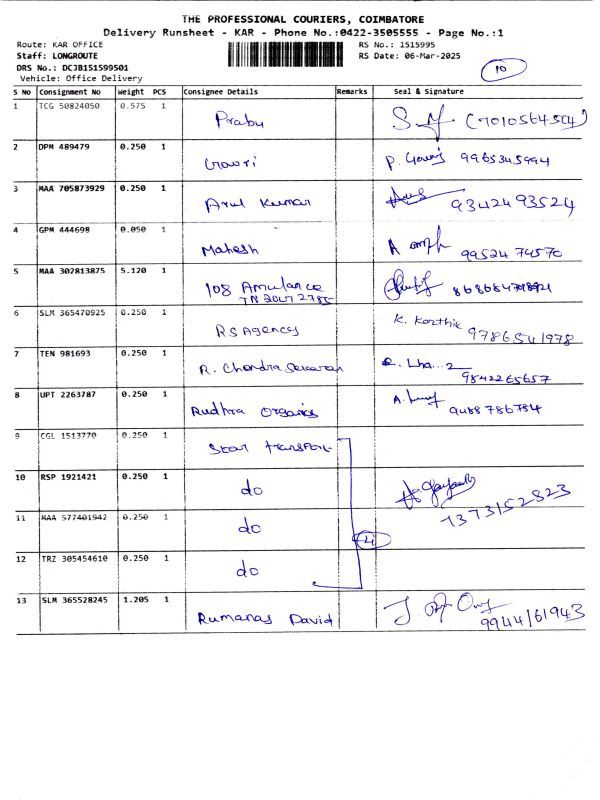 THE PROFESSIONAL COURIERS, COIMBATORE
Delivery Runsheet - KAR - Phone No.:0422-3505555 - Page No.:1
Route: KAR OFFICE RS No.: 1515995
Staff: LONGROUTE RS Date: 06-Mar-2025
DRS No.: DCJB151599501 10
Vehicle: Office Delivery
S No Consignment No Weight PCS Consignee Details Remarks Seal & Signature
1 TCG 50824050 0.575 1 Prabu
2 DPM 489479 0.250 1 Gowri P. Gowri 9965345994
3 MAA 705873929 0.250 1 Arul Kumar 9342493524
4 GPM 444698 0.050 1 Mahesh 9952474570
5 MAA 302813875 5.120 1 108 Amulance
6 SLM 365470925 0.250 1 RS Agency K. Karthik 9786541978
7 TEN 981693 0.250 1 R. Chandra Sekaran 9842265657
8 UPT 2263787 0.250 1 Rudhra Organics 9488786784
9 CGL 1513770 0.250 1 Star Transport
10 RSP 1921421 0.250 1 do 7373152823
11 MAA 577401942 0.250 1 do
4
12 TRZ 305454610 0.250 1 do
13 SLM 365528245 1.205 1 Rumanas David 9944161943